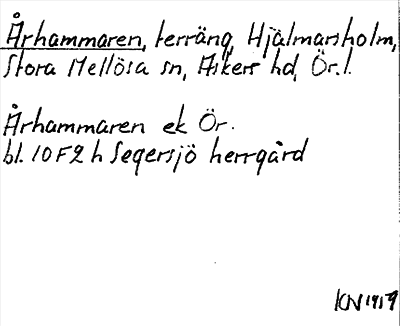 Århammaren, terräng, Hjälmarsholm,
Stora Mellösa sn, Askers hd, Ör. l.
Århammaren ek Ör.
bl. 10F2h Segersjö herrgård
KN 1917